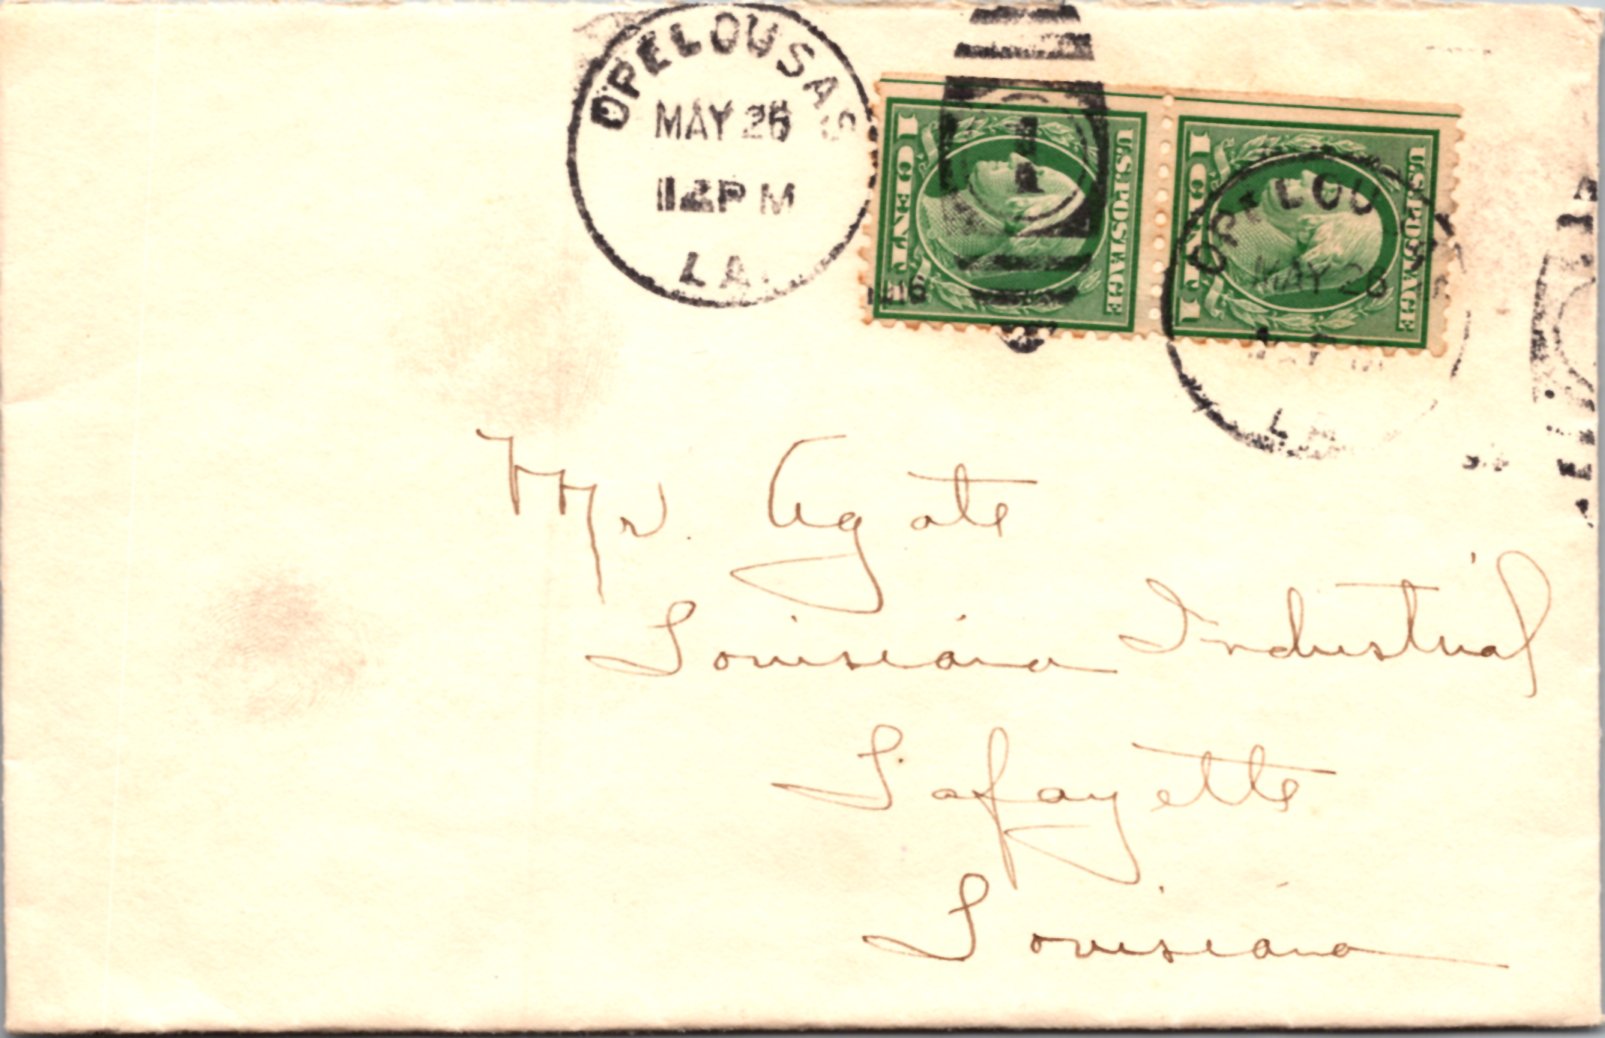 OPELOUSAS
MAY 26
12 PM
LA.
1 CENT 1
U.S. POSTAGE
1 CENT 1
U.S. POSTAGE
1
OPELOU
MAY 26
LA
Mr. Agate
Louisiana Industrial
Lafayette
Louisiana